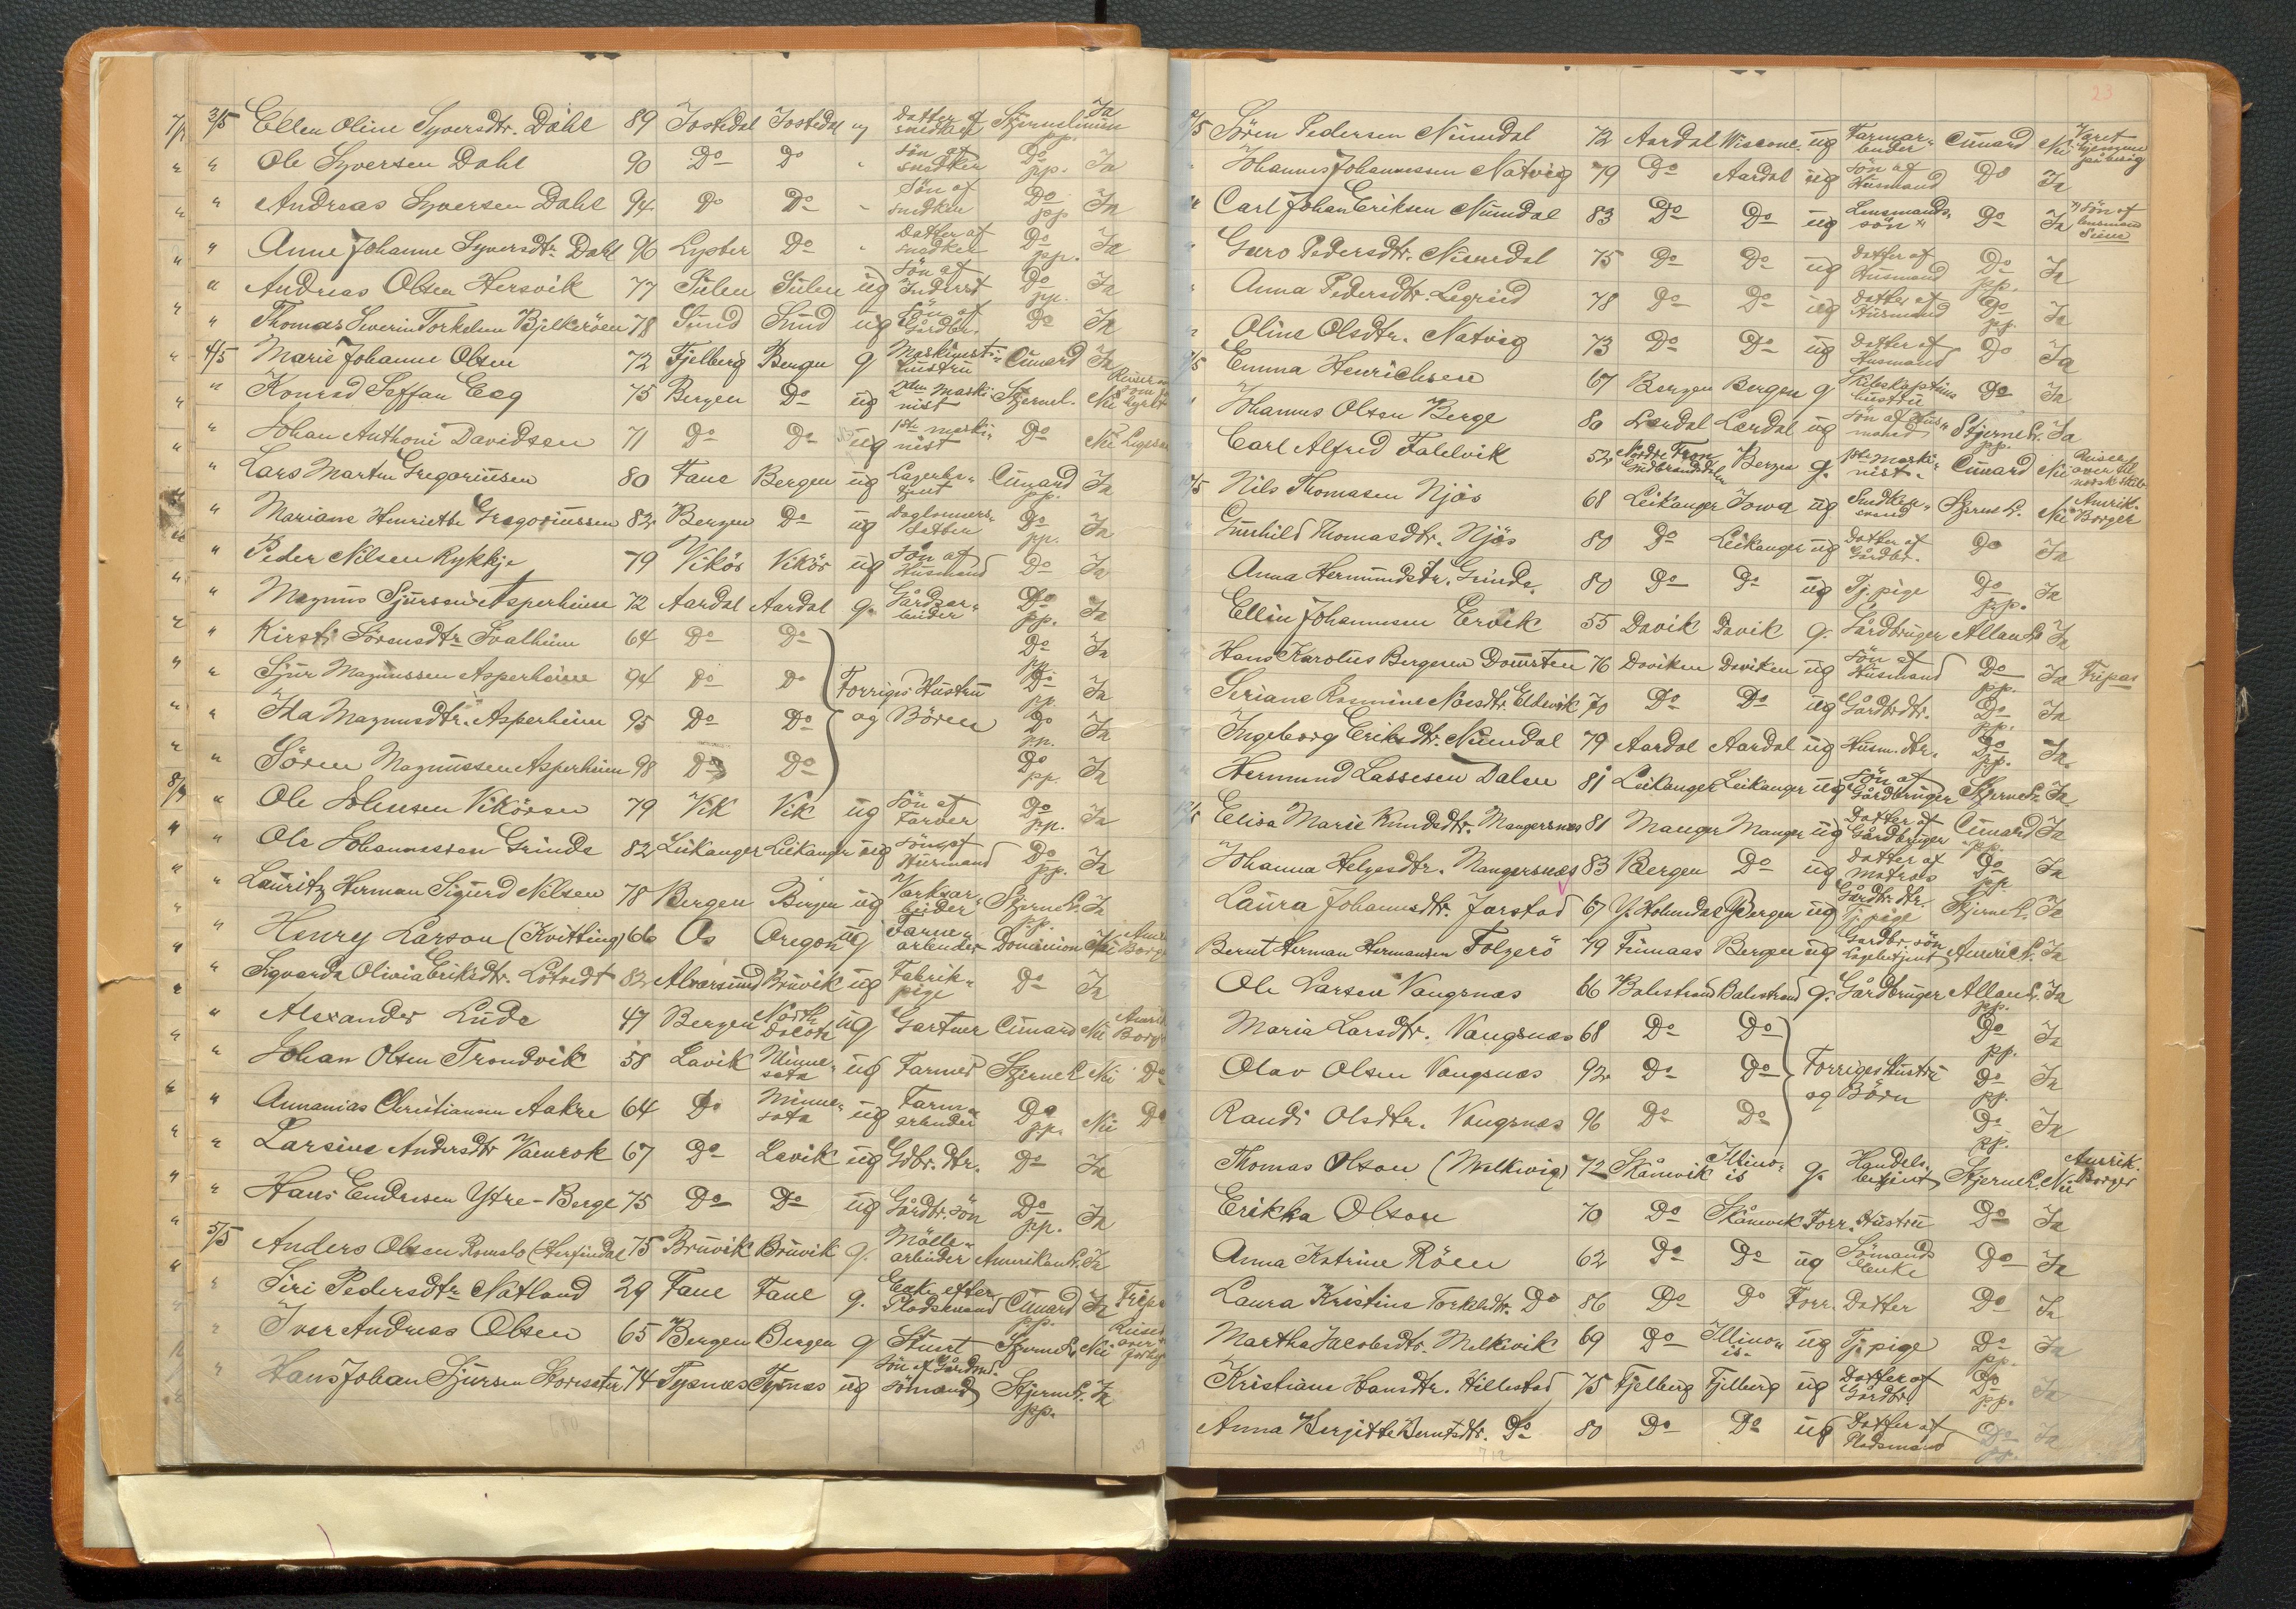 3/5 Ellen Oline Syversdtr. Dahl 89 Jostedal Jostedal ug Datter af snedker Stjernelinien pp. Ja
" Ole Syversen Dahl 90 Do Do " Sön af snedker Do pp. Ja
" Andreas Syversen Dahl 94 Do Do " Sön af snedker Do pp Ja
" Anne Johanne Syversdtr. Dahl 96 Lyster Do " Datter af snedker Do pp. Ja
" Andreas Olsen Hersvik 77 Sulen Sulen ug Sön af Inderst Do pp. Ja
" Thomas Severin Torkelsen Bjelkeröen 78 Sund Sund ug Sön af Gårdbr. Do Ja
4/5 Marie Johanne Olsen 72 Fjelberg Bergen g Maskinist- hustru Cunard Ja
" Konrad Seffan Eeg 75 Bergen Do ug 2den Maski nist Stjernel. Nei
" Johan Anthoni Davidsen 71 Do Do ug 1ste maski- nist Do Nei Ligesaa
" Lars Martin Gregoriussen 80 Fane Bergen ug Lagerbe- tjent Cunard pp. Ja
" Mariane Henriette Gregoriussen 82 Bergen Do ug Daglönners- datter Do pp. Ja
" Peder Nilsen Rykkje 79 Vikör Vikör ug Sön af Husmand Do Ja
" Magnus Sjursen Asperheim 72 Aardal Aardal g. Gårdsar- beider Do pp. Ja
" Kirsti Sörensdtr. Svalheim 64 Do Do Do pp. Ja
" Sjur Magnussen Asperheim 94 Do Do Forriges Hustru Do pp. Ja
" Ida Magnusdtr. Asperheim 95 Do Do og Börn Do pp. Ja
" Sören Magnussen Asperheim 98 Do Do Do pp. Ja
" Ole Johnsen Vikören 79 Vik Vik ug Sön af Farver Do pp. Ja
" Ole Johannessen Grinde 82 Leikanger Leikanger ug Sön af Husmand Do pp. Ja
" Lauritz Herman Sigurd Nilsen 78 Bergen Bergen ug Værksar- beider Stjernel. pp. Ja
" Henry Larson (Kvitting) 66 Os Oregon ug Farm- arbeider Dominion Nei
" Sigvarda Olivia Eriksdtr. Lötvedt 82 Alversund Bruvik ug Fabrik- pige Do Ja
" Alexander Lude 47 Bergen North Dacota ug Gartner Cunard Nei
" Johan Olsen Trondvik 58 Lavik Minne- sota ug Farmer Stjernel Nei Do
" Annanias Christiansen Aakre 64 Do Minne- sota ug Farm- arbeider Do pp. Nei Do
" Larsine Andersdtr 67 Do Lavik ug Gdbr. dtr. Do Ja
" Hans Endresen Ytre-Berge 75 Do Do ug Gårdbr. sön Do pp. Ja
5/5 Anders Olsen Romslo (Herfindal 75 Bruvik Bruvik g. Mölle- arbeider Amerikanl. Ja
" Siri Pedersdtr. Natland 29 Fane Fane g. Enke efter Pladsmand Cunard pp. Ja
" Iver Andreas Olsen 65 Bergen Bergen g Stuert Stjernel. Nei
" Hans Johan Sjursen 74 Tysnæs Tysnæs ug Sön af Gårdmd. sömand Stjernel. pp. Ja
23
Sören Pedersen Nundal 72 Aardal Wisconc. ug Farmar- beider Cunard Nei Været hjemme paa besög
" Johannes Johannesen Natvig 79 Do Aardal ug Sön af Husmand Do Ja
" Carl Johan Eriksen Nundal 83 Do Do ug Lensmands- sön Do Ja
" Guro Pedersdtr. Nundal 75 Do Do ug Datter af Husmand Do pp. Ja
" Anna Pedersdtr. Legreid 78 Do Do ug Datter af Husmand Do pp. Ja
" Oline Olsdtr. Natvig 73 Do Do ug Datter af Husmand Do Ja
Emma Henrichsen 67 Bergen Bergen g Skibskapteins hustru Do Ja
" Johannes Olsen Berge 80 Lærdal Lærdal ug Sön af Hus- mand Stjernel. pp. Ja
Carl Alfred Falelvik 52 Nordre Fron Gudbrandsdalen Bergen g. 1ste Maski- nist. Cunard Nei Reiser over til norsk skib
Nils Thomasen Njös 68 Leikanger Iowa ug Snedker- svend Stjernel. Nei Amerik. Borger
Gunhild Thomasdtr. Njös 80 Do Leikanger ug Datter af Gårdbr. Do Ja
Anna Hermundsdtr. Grinde. 80 Do Do ug Tj. pige Do pp. Ja
Ellin Johannesen Ervik 55 Davik Davik g. Gårdbruger Allanl. Ja
Hans Karolus Bergesen 76 Daviken Daviken ug Sön af Husmand Do pp. Ja Fripas
Seriane Rasmine Nilsdtr. Eldevik 70 Do Do ug Gårdbr.dtr. Do pp. Ja
Ingeborg Eriksdtr. Nundal 79 Aardal Aardal ug Husm. dtr. Do pp. Ja
Hermund Lassesen Dalen 81 Leikanger Leikanger ug Sön af Gårdbruger Stjernel. Ja
Elisa Marie Knudsdtr. Mangersnæs 81 Manger Manger ug Datter af Gårdbruger Cunard pp. Ja
Johanna Helgesdtr. Mangersnæs 83 Bergen Do ug Datter af Matros Do pp. Ja
Laura Johannsdtr. Jarstad 67 Y. Holmedal Bergen ug Gårdbr. dtr. Tj. pige Stjernel. Ja
Bernt Herman Hermansen Folgerö 79 Finnaas Bergen ug Gårdbr. sön Lagebetjent Americ.l. Ja
Ole Larsen Vangsnæs 66 Balestrand Balestrand g. Gårdbruger Allanl. pp. Ja
Maria Larsdtr. Vangsnæs 68 Do Do Do pp. Ja
Olav Olsen Vangsnæs 92 Do Do Forriges Hustru og Börn Do pp. Ja
Randi Olsdtr. Vangsnæs 96 Do Do Do pp. Ja
Thomas Olson (Melkivig) 72 Skånevik Illino- is g. Handels- betjent Stjernel. Nei Amerik. Borger
Erikka Olson 70 Do Skånevik Forr. Hustru Do Ja
Anna Katrine Röen 62 Do Do ug Sömands Enke Do Ja
Laura Kristine Torkelsdtr. Do 86 Do Do Forr. Datter Do Ja
Martha Jacobsdtr. Melkivik 69 Do Illino- is. ug Tj. pige Do pp. Ja
Kristiane Hansdtr. Hillestad 75 Fjelberg Fjelberg ug Datter af Gårdbr. Do pp. Ja
Anna Berjitte Berntsdtr. Do 80 Do Do ug Datter af Pladsmand Do pp. Ja